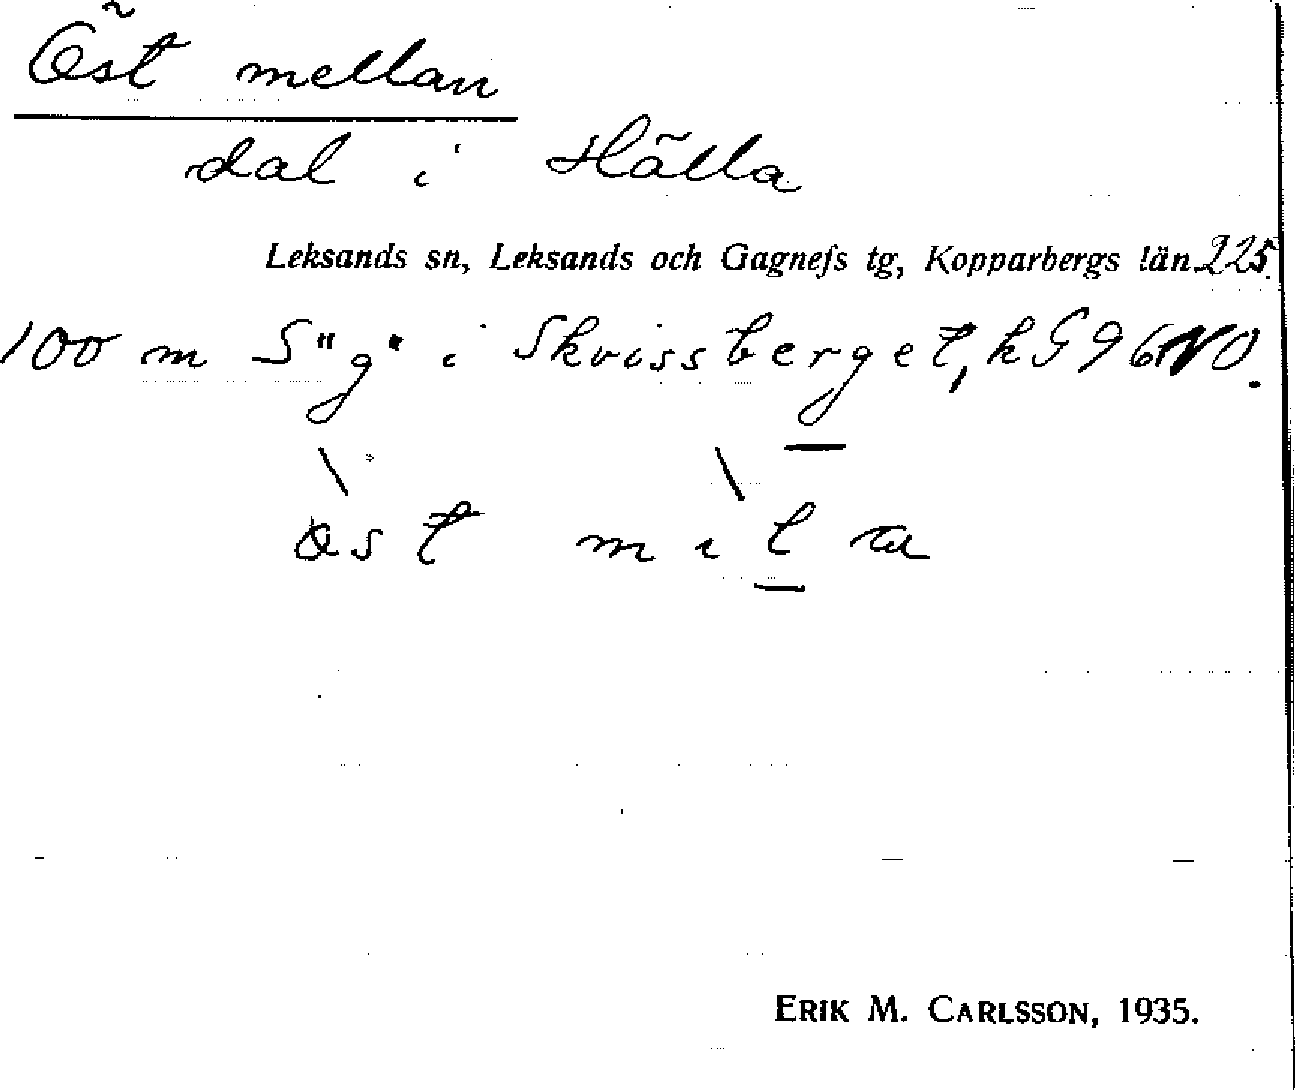 Öst mellan
dal i Hälla
Leksands sn, Leksands och Gagnefs tg, Kopparbergs län 225.
100 m S "g" i Skrissberget, k G 9 6 NO.
öst mıla
ERIK M. CARLSSON, 1935.